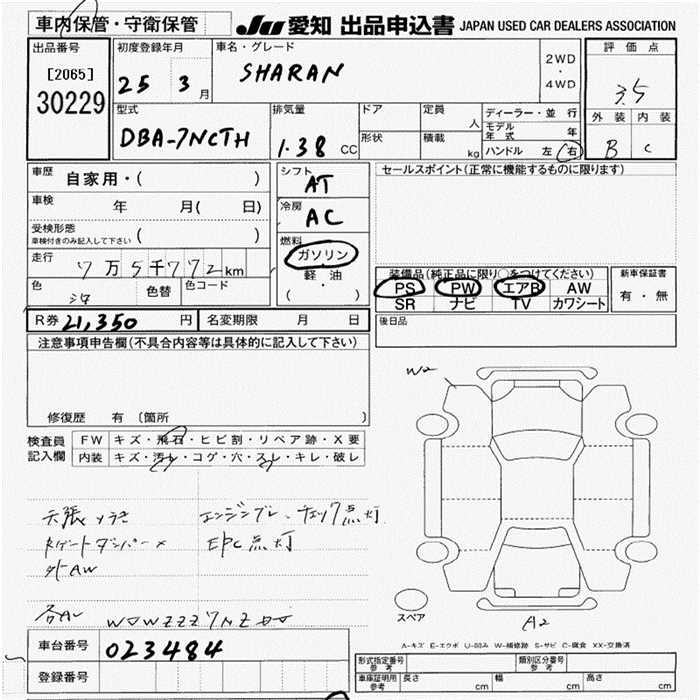 車内保管・守衛保管
JU 愛知 出品申込書 JAPAN USED CAR DEALERS ASSOCIATION
出品番号
[2065]
30229
初度登録年月
25 3月
車名・グレード
SHARAN
2WD
・
4WD
評価点
3.5
外装 内装
B C
型式
DBA-7NCTH
排気量
1.38 CC
ドア
形状
定員
人
積載
kg
ディーラー・並行
モデル年式 年
ハンドル 左 右
車歴
自家用・( )
車検 年 月( 日)
受検形態
車検付きのみ記入して下さい ( )
走行 7万5千772km
色 色替 色コード
シフト
AT
冷房
AC
燃料
ガソリン
軽・油
( ・ )
セールスポイント(正常に機能するものに限ります)
装備品(純正品に限り○をつけてください)
PS PW エアB AW
SR ナビ TV カワシート
新車保証書
有・無
R券 21,350 円 名変期限 月 日
後日品
注意事項申告欄(不具合内容等は具体的に記入して下さい)
修復歴 有 〔箇所 〕
検査員記入欄
FW キズ・飛石・ヒビ割・リペア跡・X要
内装 キズ・汚レ・コゲ・穴・スレ・キレ・破レ
W2
天張 エンジンブレ、チェック点灯
EPC点灯
外AW
スペア
A2
A-キズ E-エクボ U-凹み W-補修跡 S-サビ C-腐食 XX-交換済
車台番号 023484
登録番号
形式指定番号
参考
類別区分番号
参考
車庫証明用
参考
長さ cm 幅 cm 高さ cm